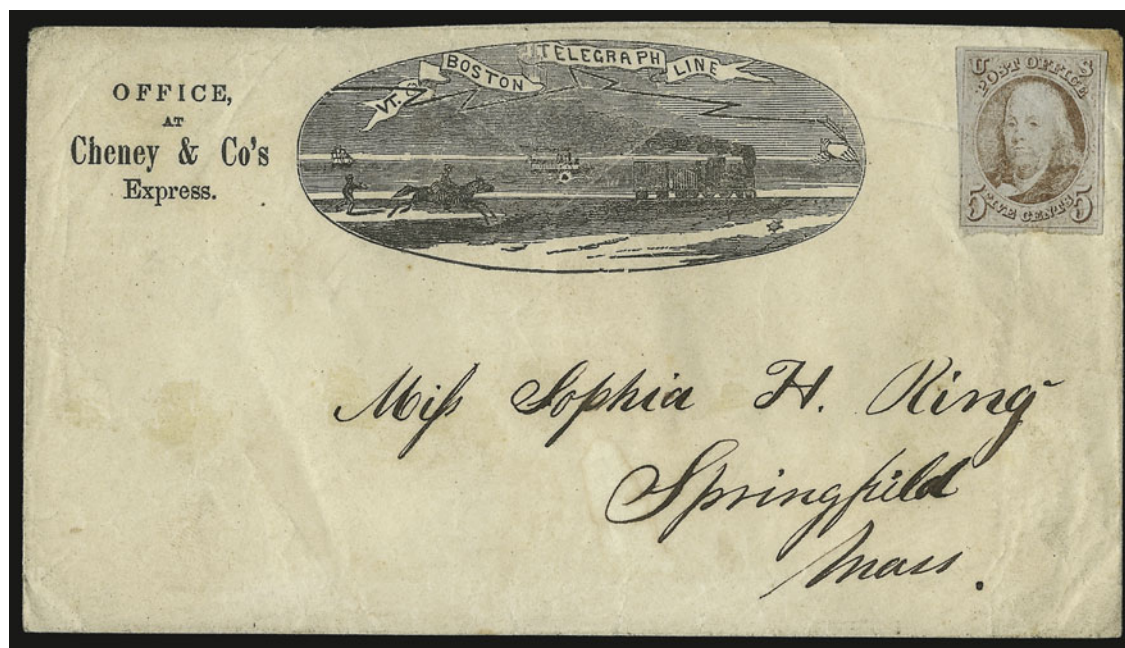 OFFICE,
AT
Cheney & Co's
Express.
VT. & BOSTON TELEGRAPH LINE
U S
POST OFFICE
5 FIVE CENTS 5
Miſs Sophia H. King
Springfield
Mass.